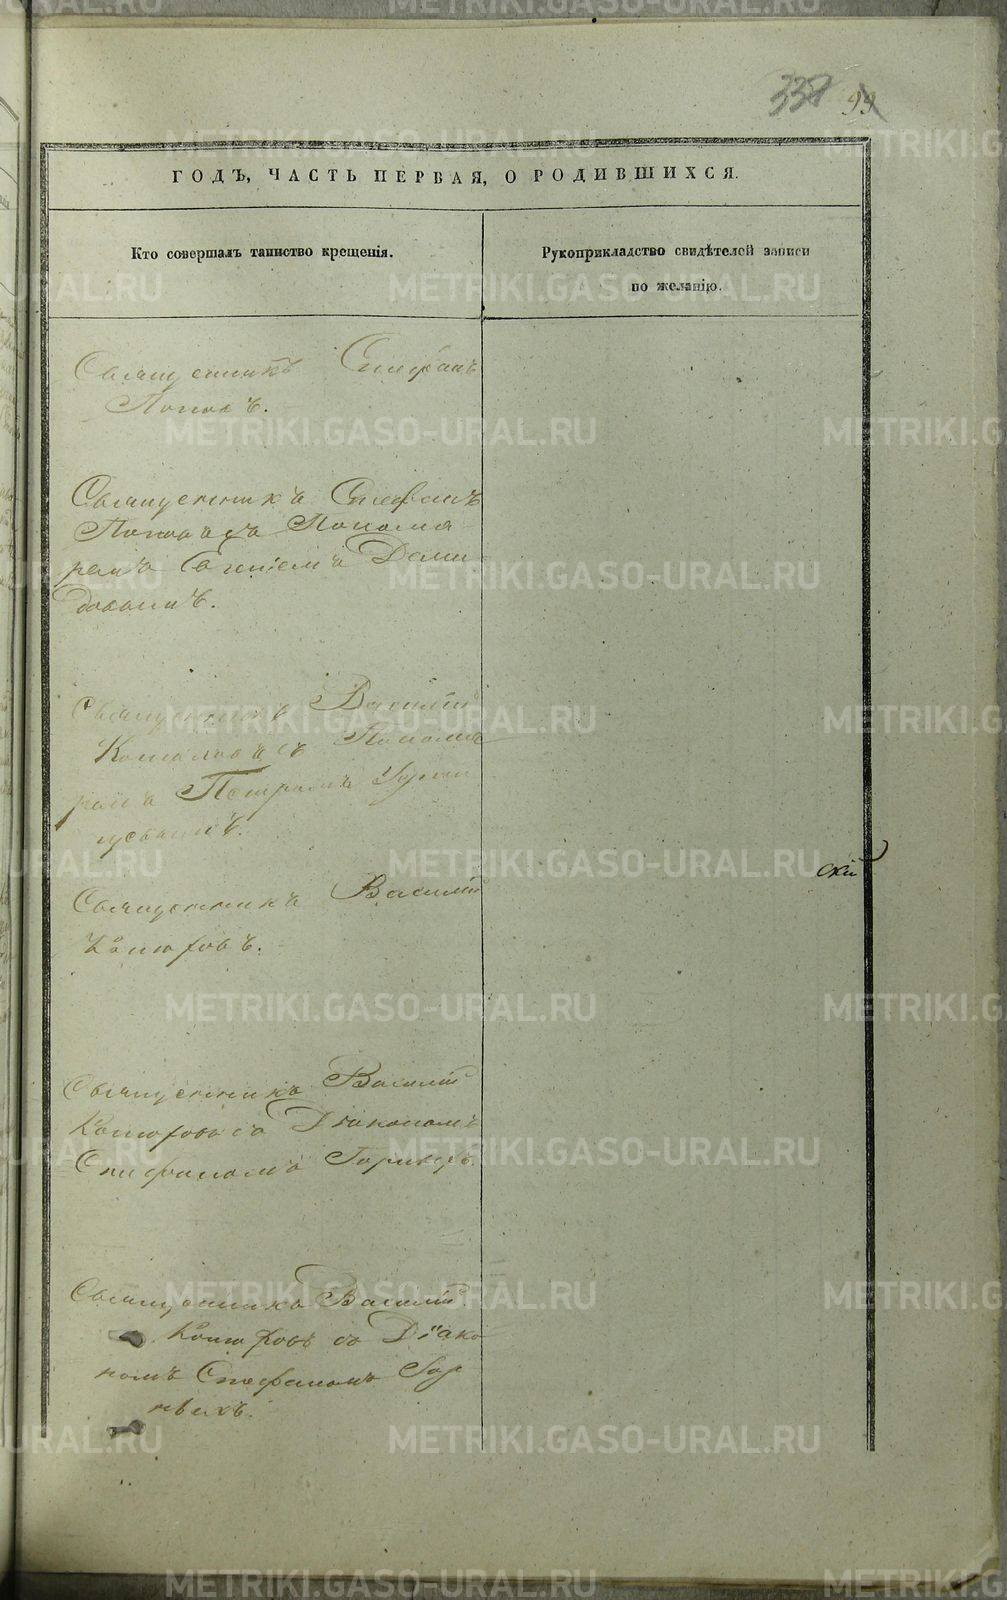 338 99
ГОДЪ, ЧАСТЬ ПЕРВАЯ, О РОДИВШИХСЯ.
Кто совершалъ таинство крещенія.
Рукоприкладство свидѣтелей записи
по желанію.
Священникъ Стефанъ
Поповъ.
Священникъ Стефанъ
Поповъ съ Понома
ремъ Евгеніемъ Деми
довымъ.
Священникъ Василій
съ Понома
ремъ Петромъ
Священникъ Василій
скій
Священникъ Василій
съ Діакономъ
Стефаномъ
Священникъ Василій
съ Діако
номъ Стефаномъ Гор
METRIKI.GASO-URAL.RU